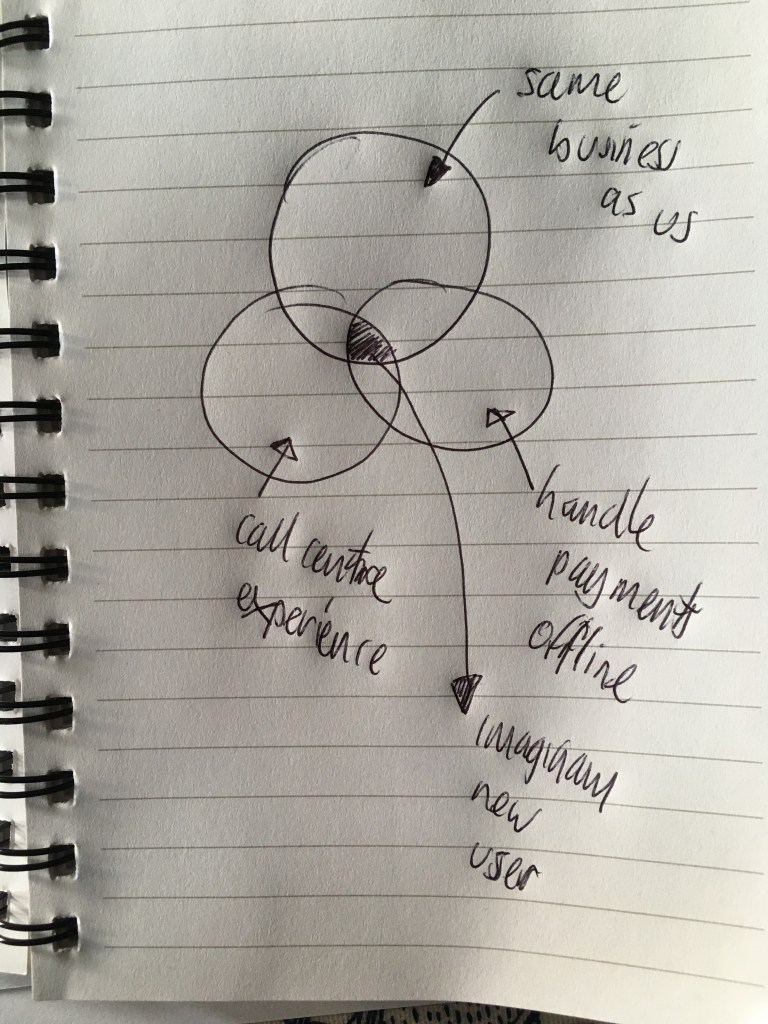 same
business
as us
call centre
experience
handle
payments
offline
imaginary
new
user